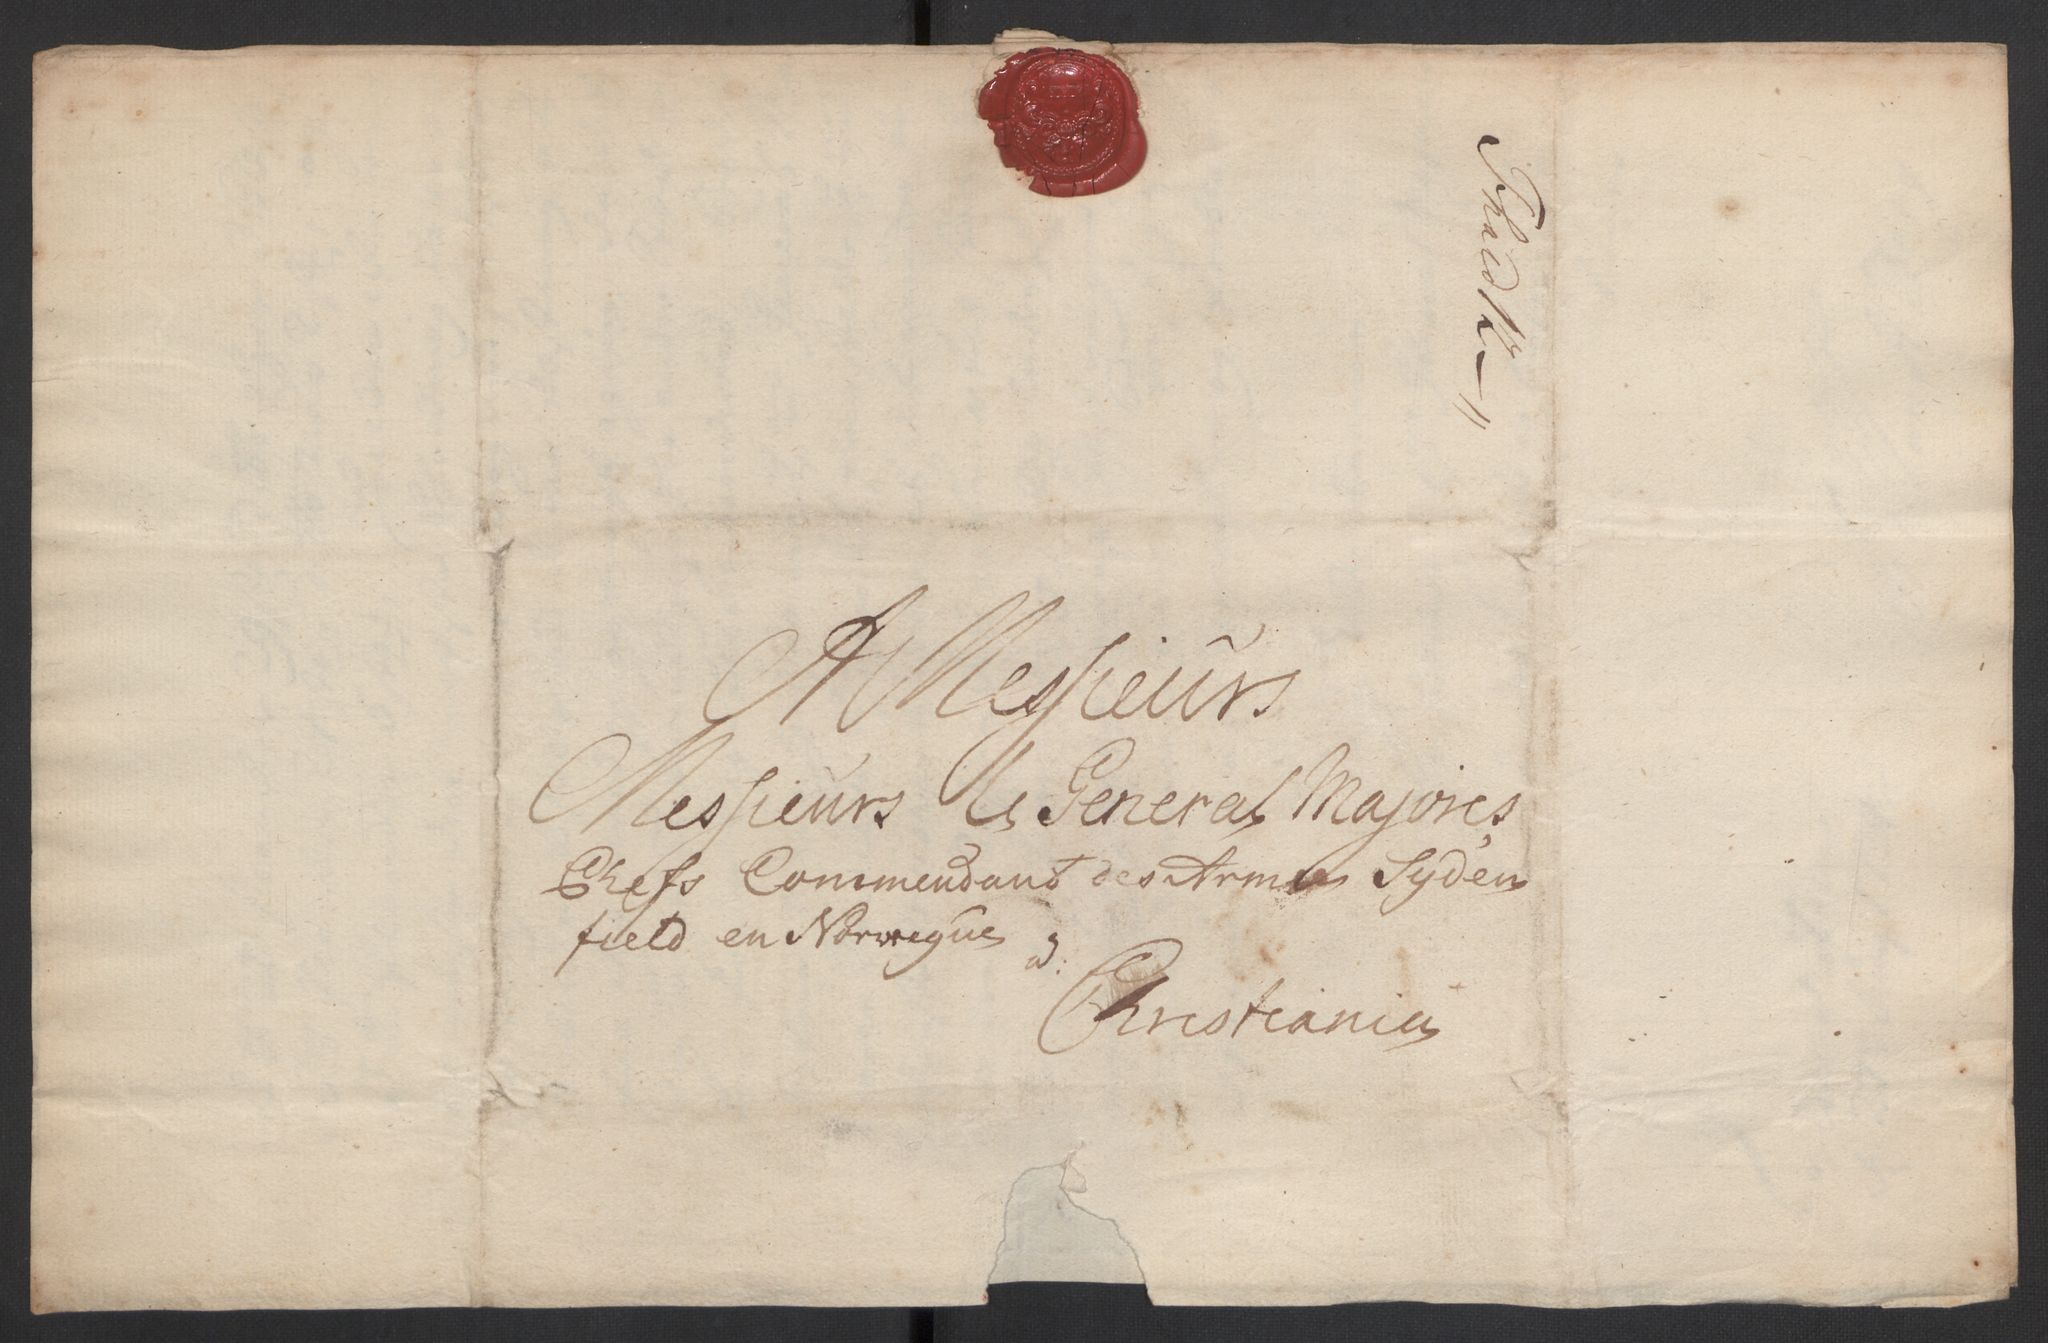 A Messieurs
Messieurs les General Majores
Chefs Commendant des Armes Syden
field en Norwegue
à:
Christiania